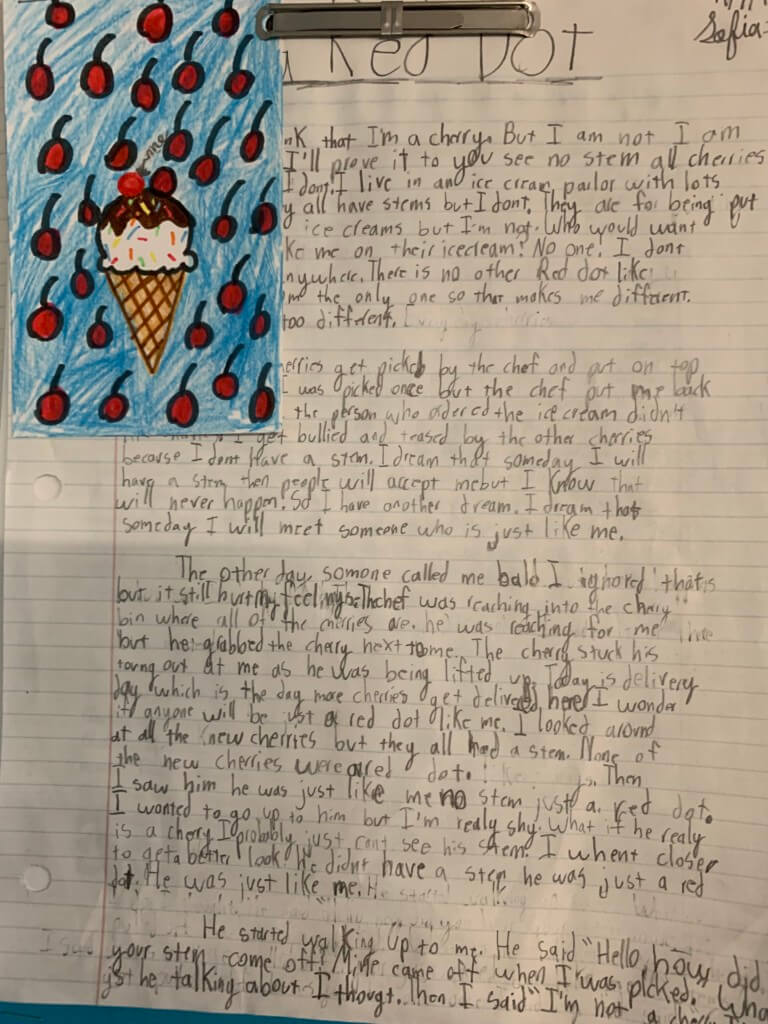 Sofia
a Red Dot
me
nk that I'm a cherry. But I am not I am
I'll prove it to you see no stem all cherries
I dont. I live in an ice cream parlor with lots
y all have stems but I dont. They are for being put
ice creams but I'm not. Who would want
ke me on their icecream? No one. I dont
nywhere. There is no other Red dot like
m the only one so that makes me different.
too different.
herries get picked by the chef and put on top
I was picked once but the chef put me back
the person who ordered the ice cream didn't
I get bullied and teased by the other cherries
because I dont have a stem. I dream that someday I will
have a stem then people will accept me but I know that
will never happen. So I have another dream. I dream that
someday I will meet someone who is just like me.
The other day, somone called me bald I ignored that
but it still hurt my feelings. The chef was reaching into the cherry
bin where all of the cherries are. he was reaching for me
but he grabbed the cherry next to me. The cherry stuck his
toung out at me as he was being lifted up. Today is delivery
day which is the day more cherries get delivered, here I wonder
if anyone will be just a red dot like me. I looked around
at all the new cherries but they all had a stem. None of
the new cherries were a red dot. Then
I saw him he was just like me no stem just a red dot.
I wanted to go up to him but I'm realy shy. What if he realy
is a cherry I probably just cant see his stem. I whent closer
to get a better look. He didnt have a stem he was just a red
dot. He was just like me.
He started walking up to me. He said "Hello, how did
your stem come off? Mine came off when I was picked.
he talking about I thougt. Then I said "I'm not a